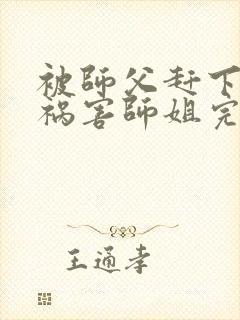 被師父赶下
祸害師姐完
王通幸